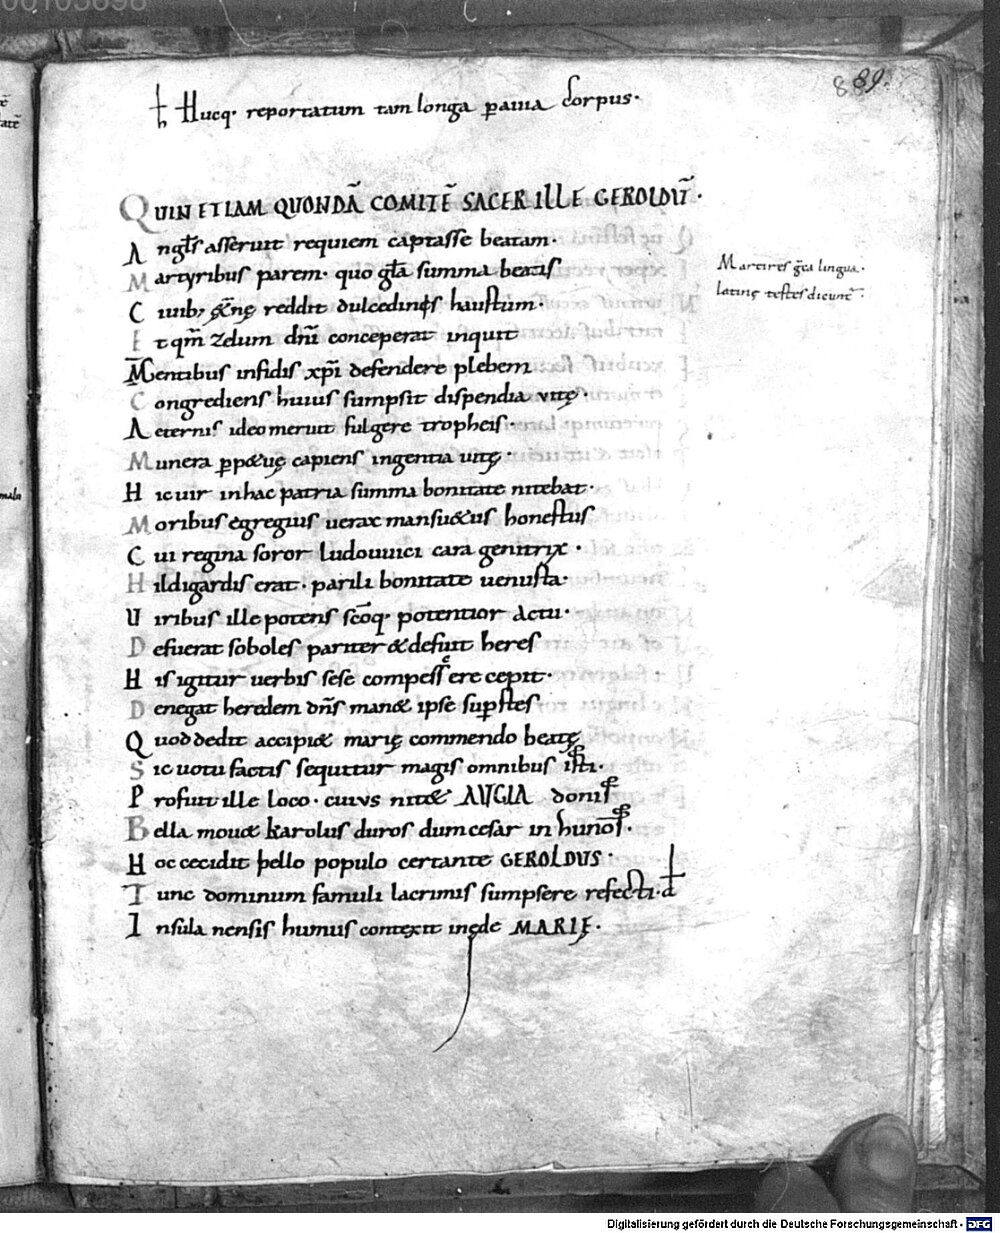 00105698
889.
Hucq· reportatum tam longa p̱ auia corpus·
QUIN ETIAM QUONDÃ COMITẼ SACER ILLE GEROLDŨ·
Angłs asseruit requiem captasse beatam·
Martyribus parem· quo gła summa beatis
Martires g̃ca lingua·
latinę testes dicunt̃·
Cuib; reddit dulcedinis haustum·
Et qm̃ zelum dñi conceperat inquit
Mentibus infidis xp̃i defendere plebem
Congrediens huius sumpsit dispendia vitę·
Aeternis ideo meruit fulgere tropheis·
Munera ꝑpetuę capiens ingentia uitę·
Hic uir in hac patria summa bonitate nitebat·
Moribus egregius uerax mansu&us honestus
Cui regina soror ludouuici cara genitrix·
Hildigardis erat· parili bonitate uenusta·
Uiribus ille potens scõq· potentior actu·
Defuerat soboles pariter & defuit heres
His igitur uerbis sese compescere cepit·
Denegat heredem dñs man& ipse suꝑstes
Quod dedit accipi& marię commendo beatę
Sic uotu factis sequitur magis omnibus isti·
Profuit ille loco· cuius nit& AUGIA donis
Bella mou& karolus duros dum cesar in hunos·
Hoc cecidit bello populo certante GEROLDUS·
Tunc dominum famuli lacrimis sumpsere refecti·
Insula nensis humus contexit inęde MARIĘ·
Digitalisierung gefördert durch die Deutsche Forschungsgemeinschaft · DFG